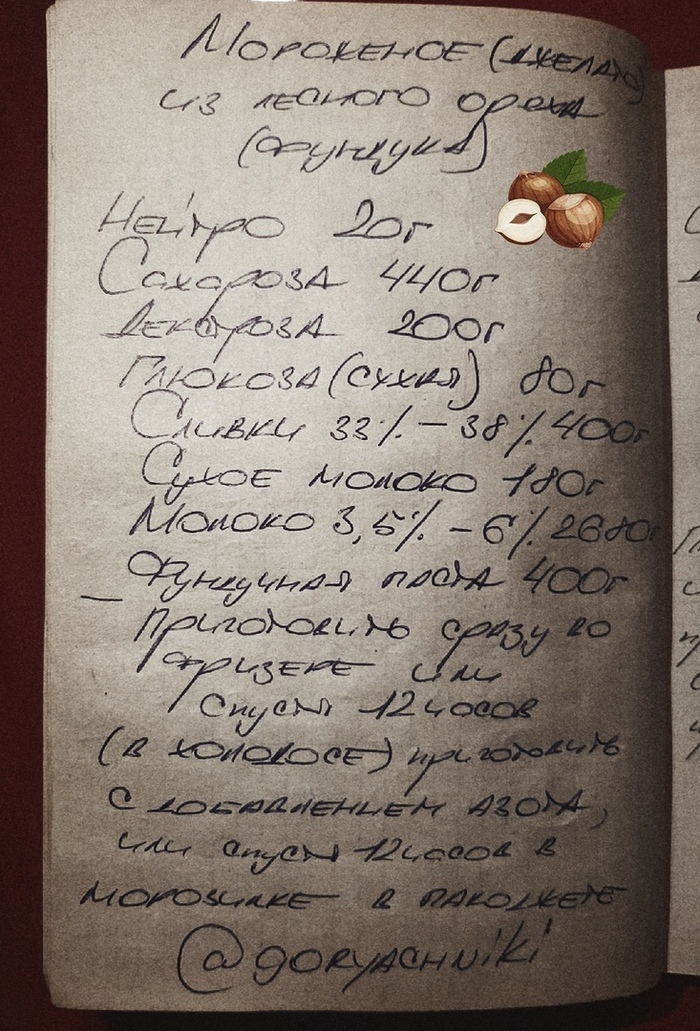 Мороженое (джелато)
из лесного ореха
(фундука)
Нейтро 20г
Сахароза 440г
Декстроза 200г
Глюкоза (сухая) 80г
Сливки 33% – 38% 400г
Сухое молоко 180г
Молоко 3,5% – 6% 2680г
Фундучная паста 400г
– Приготовить сразу во
фризере или
спустя 12 часов
(в холодосе) приготовить
с добавлением азота,
или спустя 12 часов в
морозилке в пакоджете
@goryachniki